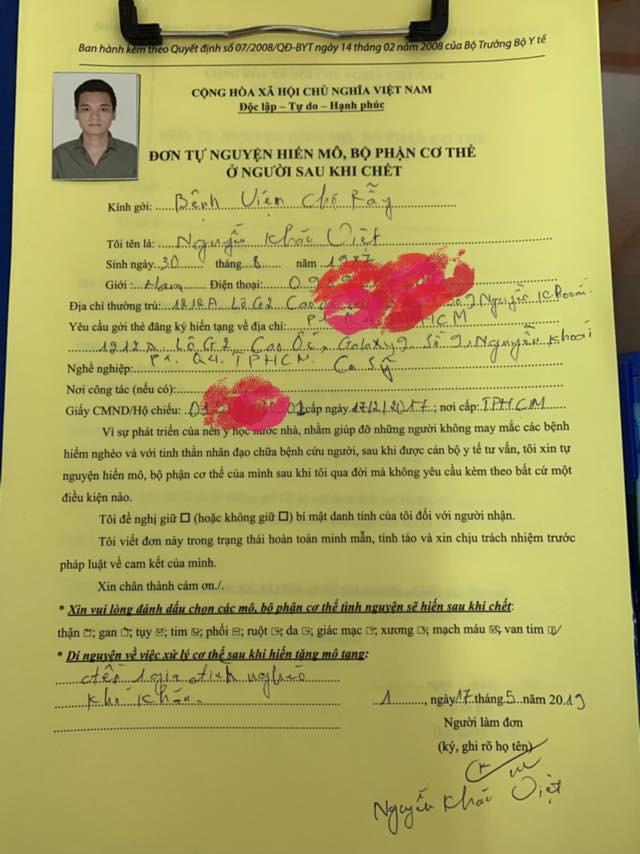 Ban hành kèm theo Quyết định số 07/2008/QĐ-BYT ngày 14 tháng 02 năm 2008 của Bộ Trưởng Bộ Y tế
CỘNG HÒA XÃ HỘI CHỦ NGHĨA VIỆT NAM
Độc lập – Tự do – Hạnh phúc
ĐƠN TỰ NGUYỆN HIẾN MÔ, BỘ PHẬN CƠ THỂ
Ở NGƯỜI SAU KHI CHẾT
Kính gởi: Bệnh Viện Chợ Rẫy
Tôi tên là: Nguyễn Khắc Việt
Sinh ngày 30 tháng 8 năm 1987
Giới: Nam Điện thoại: 09
Địa chỉ thường trú: 1212A Lô G2 Cao 9 Nguyễn Khoái
Yêu cầu gởi thẻ đăng ký hiến tặng về địa chỉ: P1 HCM
1212A Lô G2 Cao Ốc Galaxy 9 Số 9, Nguyễn Khoái
P1. Q4. TPHCM.
Nghề nghiệp: Ca Sỹ
Nơi công tác (nếu có):
Giấy CMND/Hộ chiếu: cấp ngày 17/2/2017; nơi cấp: TPHCM
Vì sự phát triển của nền y học nước nhà, nhằm giúp đỡ những người không may mắc các bệnh
hiểm nghèo và với tinh thần nhân đạo chữa bệnh cứu người, sau khi được cán bộ y tế tư vấn, tôi xin tự
nguyện hiến mô, bộ phận cơ thể của mình sau khi tôi qua đời mà không yêu cầu kèm theo bất cứ một
điều kiện nào.
Tôi đề nghị giữ ☐ (hoặc không giữ ☐) bí mật danh tính của tôi đối với người nhận.
Tôi viết đơn này trong trạng thái hoàn toàn minh mẫn, tỉnh táo và xin chịu trách nhiệm trước
pháp luật về cam kết của mình.
Xin chân thành cám ơn./.
* Xin vui lòng đánh dấu chọn các mô, bộ phận cơ thể tình nguyện sẽ hiến sau khi chết:
thận ☑; gan ☑; tụy ☑; tim ☑; phổi ☑; ruột ☑; da ☑; giác mạc ☑; xương ☑; mạch máu ☑; van tim ☑
* Di nguyện về việc xử lý cơ thể sau khi hiến tặng mô tạng:
đến 1 gia đình nghèo
khó khăn.
1, ngày 17 tháng 5 năm 2019
Người làm đơn
(ký, ghi rõ họ tên)
Nguyễn Khắc Việt